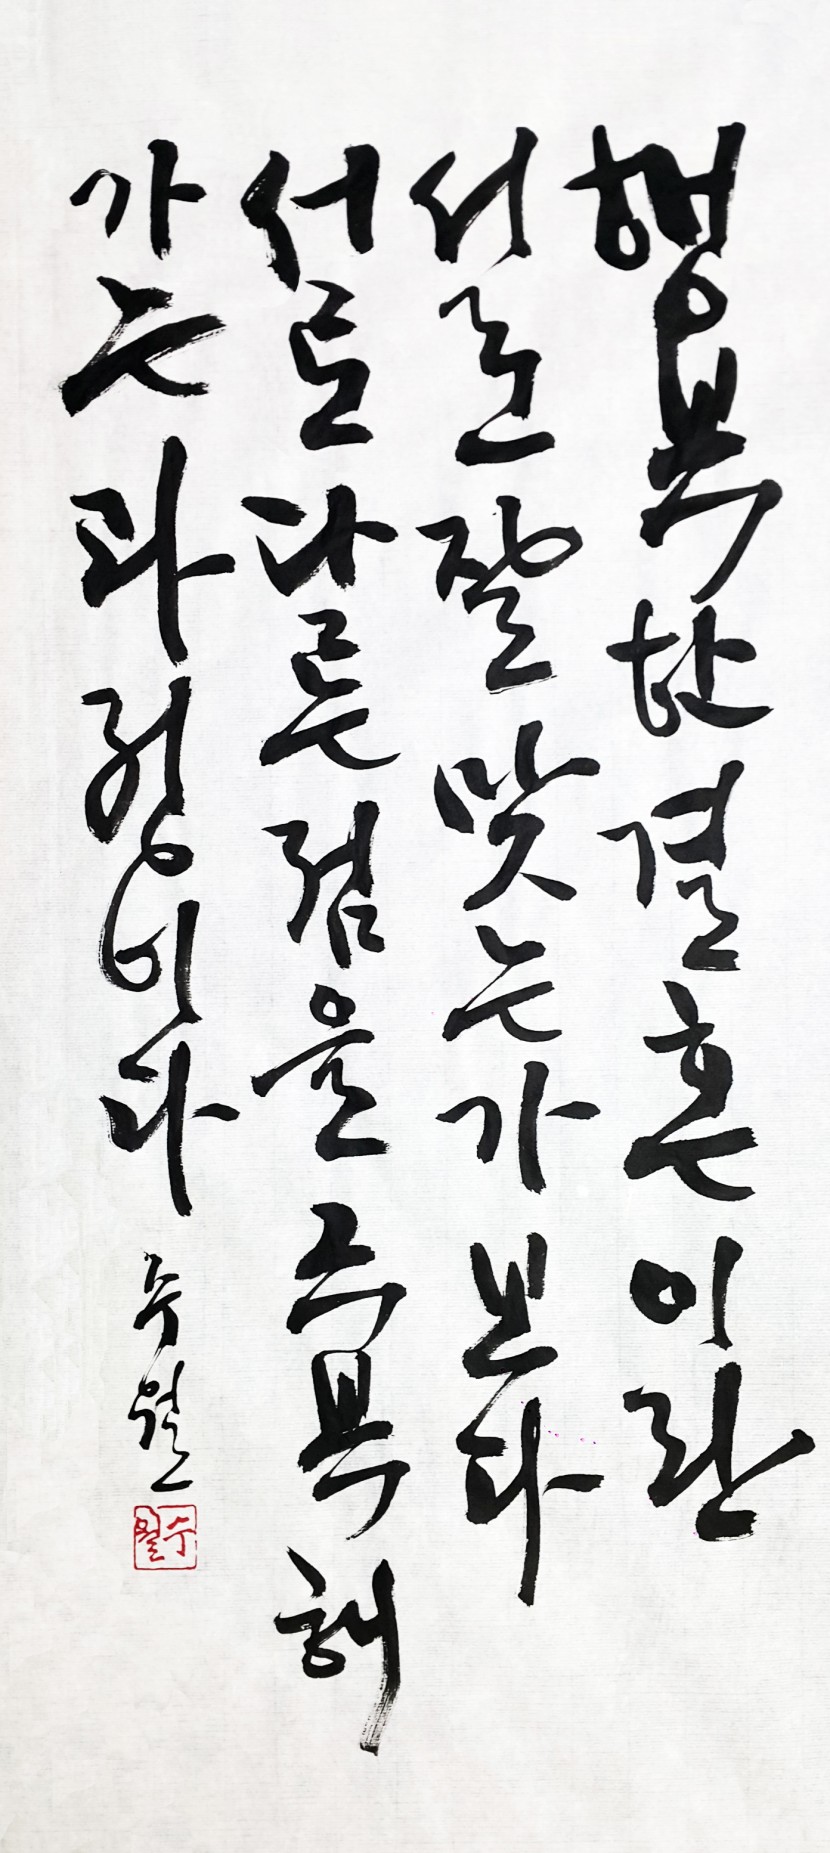 행복한 결혼이란
서로 잘 맞는가 보다
서로 다른 점을 극복해
가는 과정이다 수월
수월